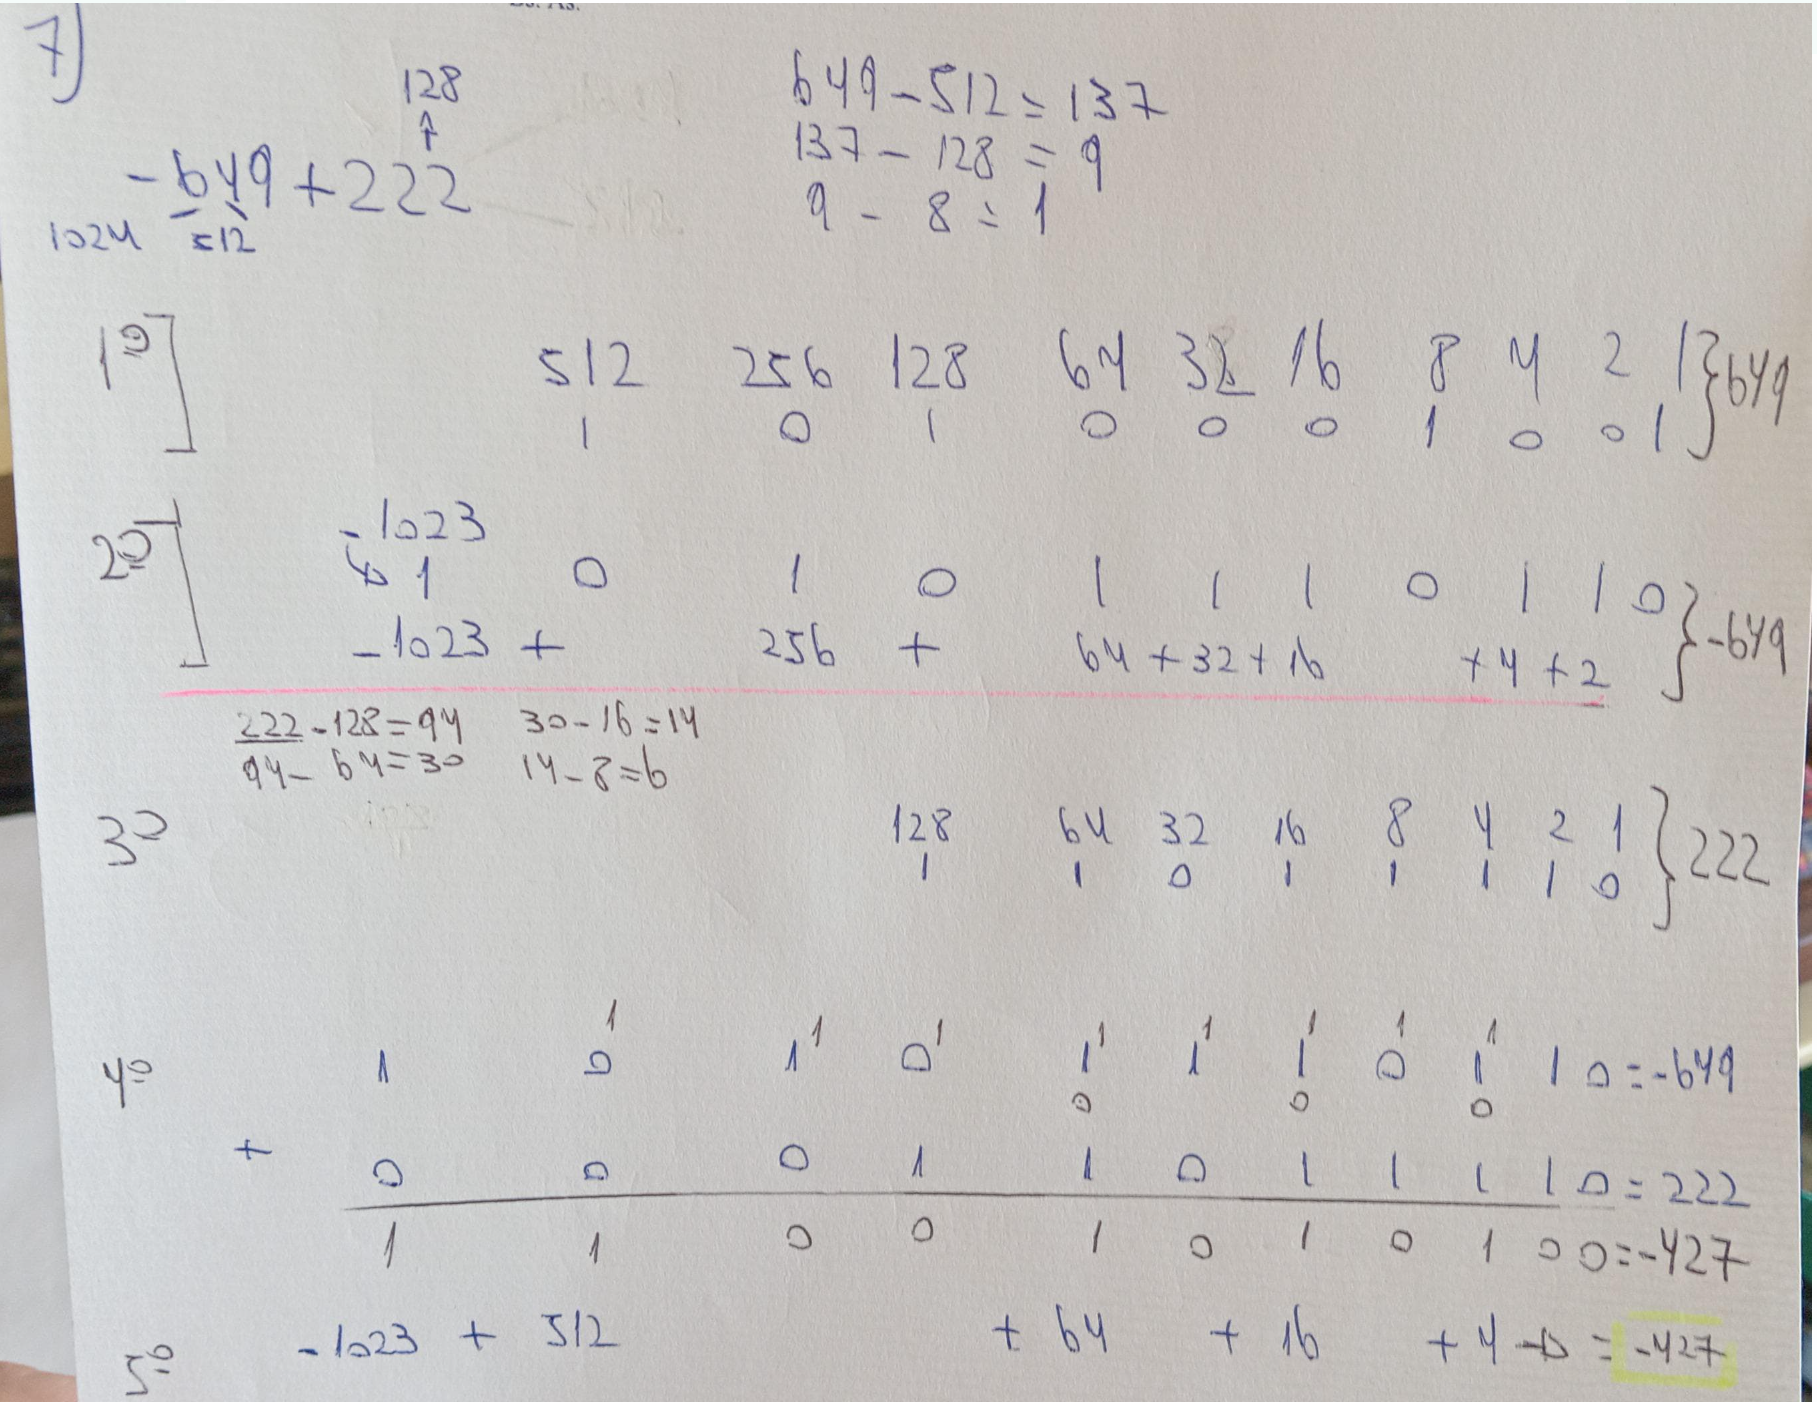 7)
128
↑
-649+222
1024 512
649-512=137
137-128=9
9-8=1
1º] 512 256 128 64 32 16 8 4 2 1 } 649
1 0 1 0 0 0 1 0 0 1
-1023
2º] ↳ 1 0 1 0 1 1 1 0 1 1 0 } -649
-1023 + 256 + 64 + 32 + 16 + 4 + 2
222-128=94 30-16=14
94-64=30 14-8=6
3º 128 64 32 16 8 4 2 1 } 222
1 1 0 1 1 1 1 0
1 1 1 1 1 1 1 1
4º 1 0 1 0 1 1 1 0 1 1 0 = -649
0 0 0
+ 0 0 0 1 1 0 1 1 1 1 0 = 222
1 1 0 0 1 0 1 0 1 0 0 = -427
5º -1023 + 512 + 64 + 16 + 4 → = -427